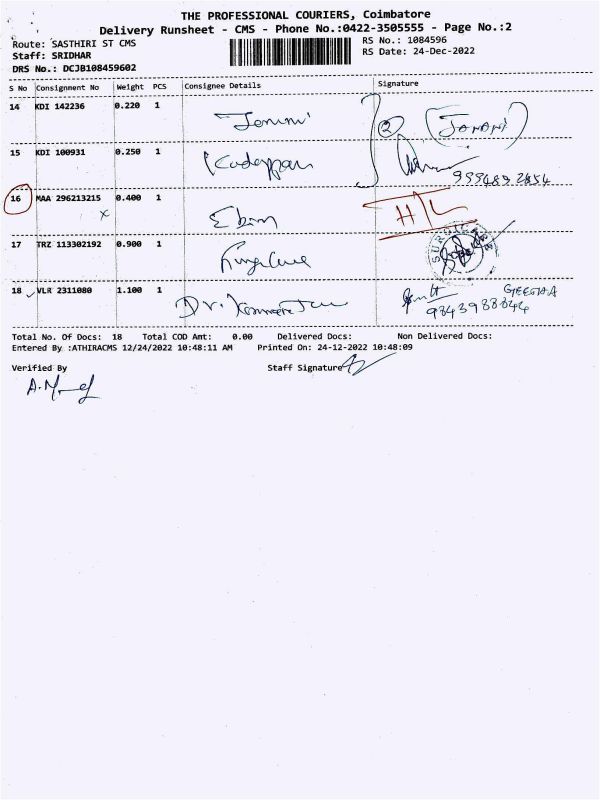 THE PROFESSIONAL COURIERS, Coimbatore
Delivery Runsheet - CMS - Phone No.:0422-3505555 - Page No.:2
Route: SASTHIRI ST CMS RS No.: 1084596
Staff: SRIDHAR RS Date: 24-Dec-2022
DRS No.: DCJB108459602
S No Consignment No Weight PCS Consignee Details Signature
14 KDI 142236 0.220 1 2 (JANANI)
15 KDI 100931 0.250 1
16 MAA 296213215 0.400 1 x Ebin H/L
17 TRZ 113302192 0.900 1
18 VLR 2311080 1.100 1 Dr. GEETHA
Total No. Of Docs: 18 Total COD Amt: 0.00 Delivered Docs: Non Delivered Docs:
Entered By :ATHIRACMS 12/24/2022 10:48:11 AM Printed On: 24-12-2022 10:48:09
Verified By Staff Signature